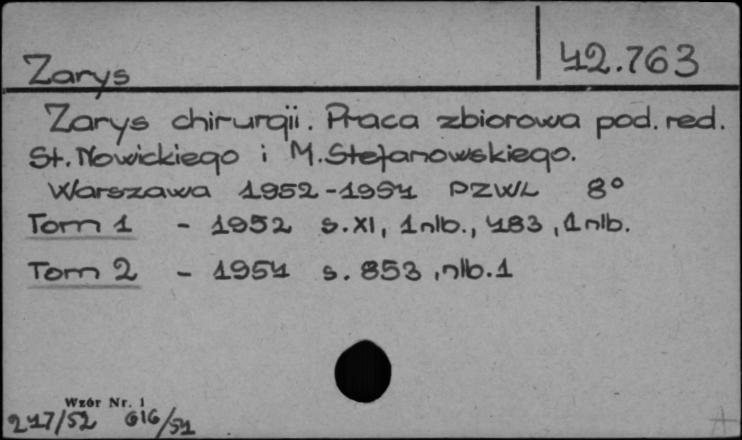 Zarys
42.763
Zarys chirurgii. Praca zbiorowa pod. red.
St. Nowickiego i M. Stefanowskiego.
Warszawa 1952-1954 PZWL 8°
Tom 1 - 1952 s. XI, 1nlb., 483, 1nlb.
Tom 2 - 1954 s. 853, nlb.1
Wzór Nr. 1
247/52 616/54